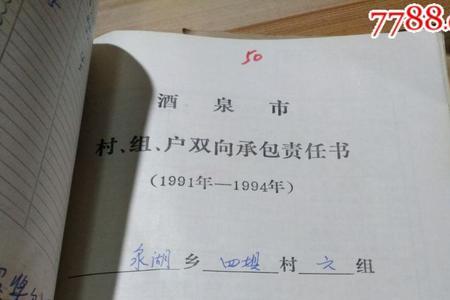 7788.c
50
酒泉市
村、组、户双向承包责任书
(1991年—1994年)
泉湖乡四坝村六组